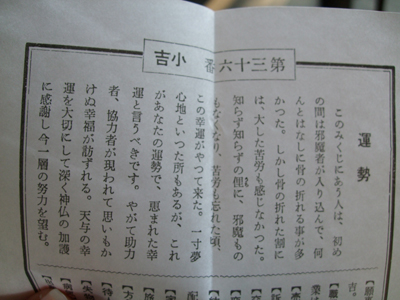 第三十六番 小吉
運勢
このみくじにあう人は、初め
の間は邪魔者が入り込んで、何
んとはなしに骨の折れる事が多
かつた。しかし骨の折れた割に
は、大した苦労も感じなかつた。
知らず知らずの俚に、邪魔もの
もなくなり、苦労も忘れた頃、
この幸運がやつて来た。一寸夢
心地といつた所もあるが、これ
があなたの運勢で、恵まれた幸
運と言うべきです。やがて助力
者、協力者が現われて思いもか
けぬ幸福が訪ずれる。天与の幸
運を大切にして深く神仏の加護
に感謝し今一層の努力を望む。
吉。